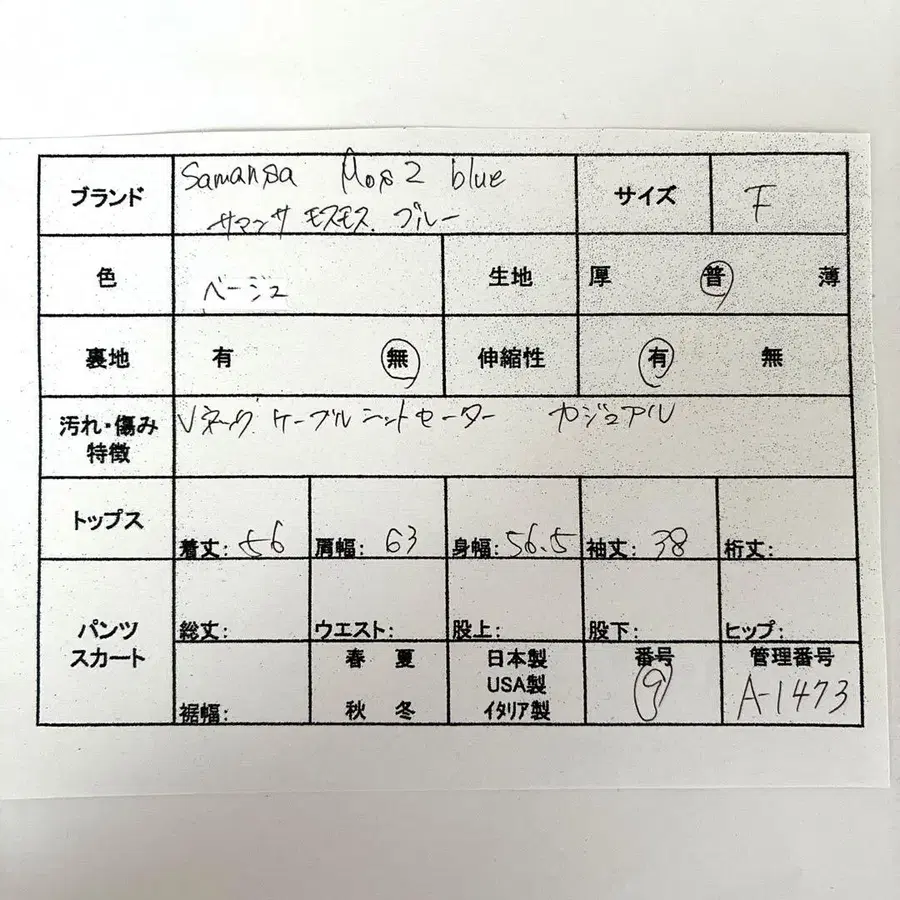 ブランド Samansa Mos2 blue サイズ F
サマンサ モスモス ブルー
色 ベージュ 生地 厚 普 薄
裏地 有 無 伸縮性 有 無
汚れ・傷み Vネック ケーブルニットセーター カジュアル
特徴
トップス 着丈: 56 肩幅: 63 身幅: 56.5 袖丈: 38 裄丈:
パンツ 総丈: ウエスト: 股上: 股下: ヒップ:
スカート 春 夏 日本製 番号 管理番号
USA製 9 A-1473
裾幅: 秋 冬 イタリア製